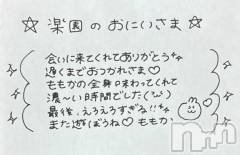 ☆ 楽園のおにいさま ☆
会いに来てくれてありがとう
遠くまでおつかれさま♡
ももかの全身味わってくれて
濃〜い時間でした(´ω`)
最後、えろえろすぎる!!
また遊ぼうね♡ ももか